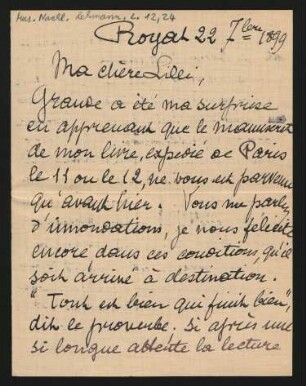 Mus. Nachl. Lehmann, L. 12,24
Royat 22 7bre 1899
Ma chère Lilli,
Grande a été ma surprise
en apprenant que le manuscrit
de mon livre, expédié de Paris
le 11 ou le 12, ne vous est parvenu
qu'avant hier. Vous me parlez
d'innondations, je nous félicite
encore dans ces conditions, qu'il
soit arrivé à destination.
"Tout est bien qui finit bien",
dit le proverbe. Si après une
si longue attente la lecture